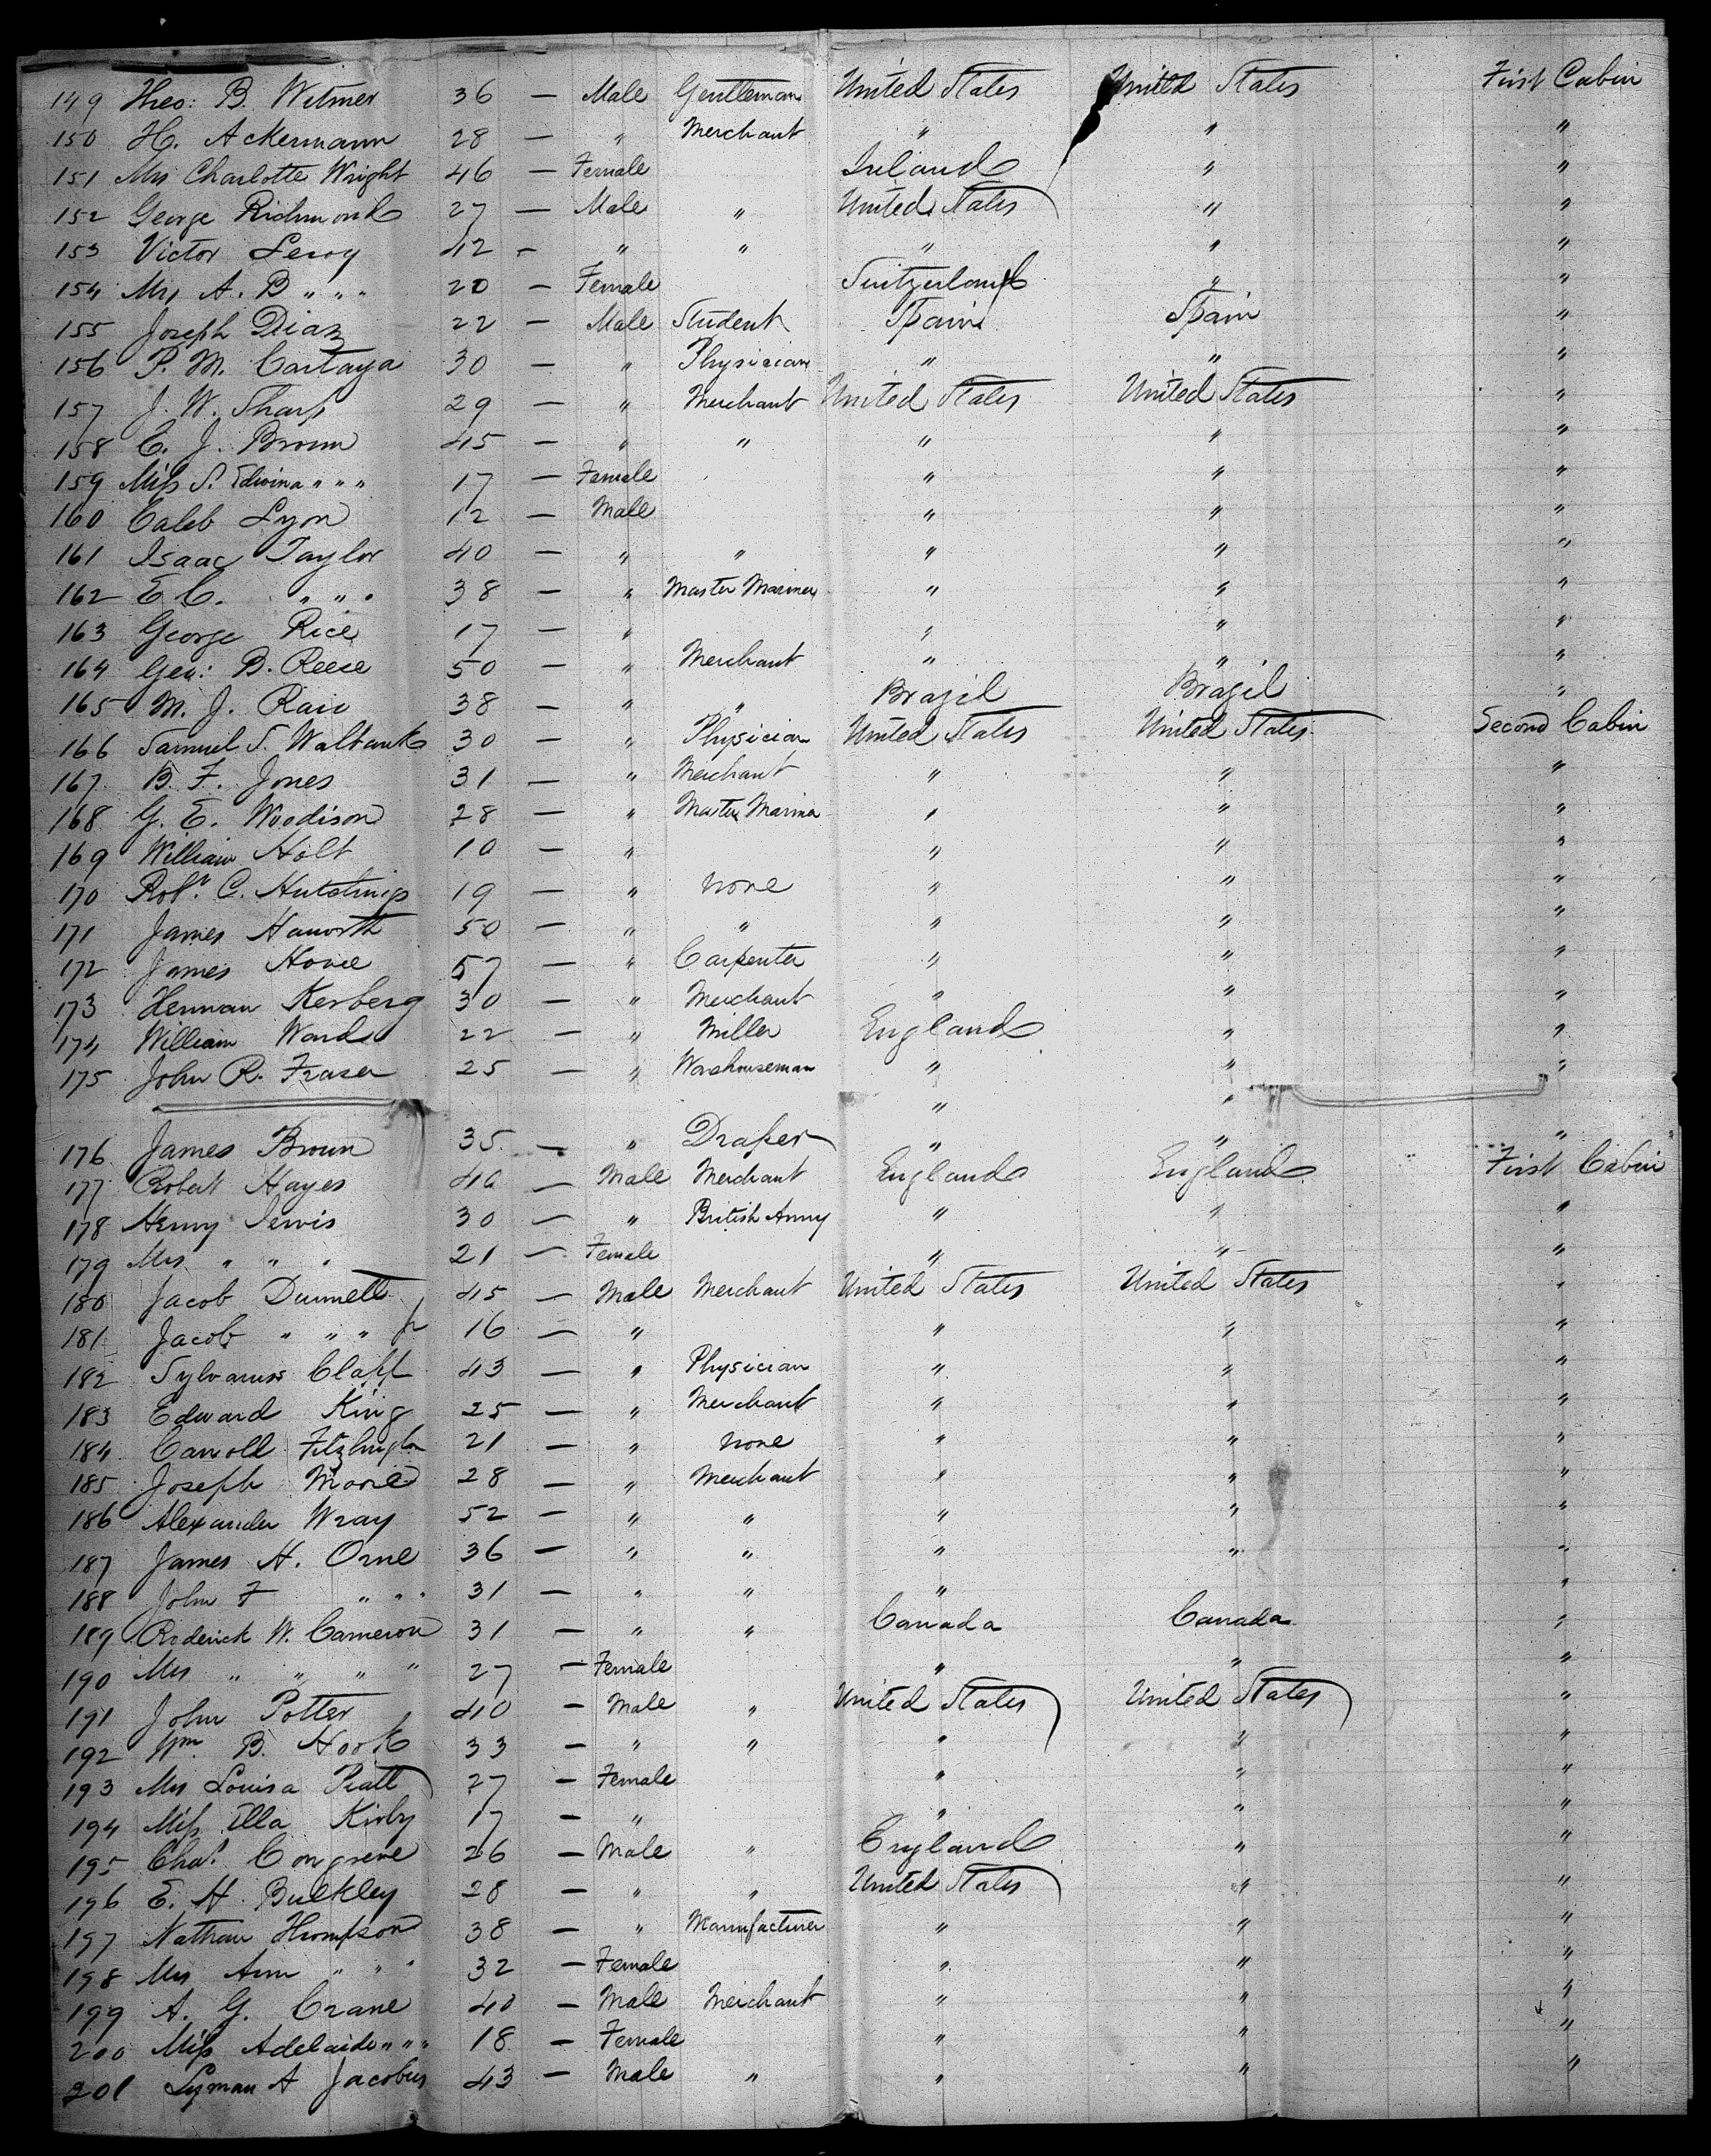 149 Theo: B. Witmer 36 — Male Gentleman United States United States First Cabin
150 H. Ackermann 28 — " Merchant " " "
151 Mrs Charlotte Wright 46 — Female Ireland " "
152 George Richmond 27 — Male " United States " "
153 Victor Leroy 42 - " " " " "
154 Mrs A. B " " " 20 — Female Switzerland " "
155 Joseph Diaz 22 — Male Student Spain Spain "
156 P. M. Cartaya 30 — " Physician " " "
157 J. W. Sharp 29 — " Merchant United States United States "
158 E. J. Brown 45 — " " " " "
159 Miss S. Edwina " " " 17 — Female " " "
160 Caleb Lyon 12 — Male " " "
161 Isaac Taylor 40 — " " " " "
162 E C. " " " 38 — " Master Mariner " " "
163 George Rice 17 — " " " "
164 Geo: B. Reese 50 — " Merchant " " "
165 M. J. 38 — " " Brazil Brazil "
166 Samuel S. Walbank 30 — " Physician United States United States Second Cabin
167 B. F. Jones 31 — " Merchant " " "
168 G. E. Woodison 28 — " Master Mariner " " "
169 William Holt 10 — " " " "
170 Robt. C. Hutchings 19 — " None " " "
171 James Haworth 50 — " " " " "
172 James Howe 57 — " Carpenter " " "
173 Herman Kerberg 30 — " Merchant " " "
174 William Ward 22 — " Miller England " "
175 John R. Fraser 25 — " Warehouseman " " "
" "
176 James Brown 35 — " Draper " " "
177 Robert Hayes 40 — Male Merchant England England First Cabin
178 Henry Jervis 30 — " British Army " " "
179 Mrs " " " 21 — Female " " "
180 Jacob Dunnell 45 — Male Merchant United States United States "
181 Jacob " " " Jr 16 — " " " "
182 Sylvanus Clapp 43 — " Physician " " "
183 Edward King 25 — " Merchant " " "
184 Carroll 21 — " None " " "
185 Joseph More 28 — " Merchant " " "
186 Alexander Wray 52 — " " " " "
187 James H. Orne 36 — " " " " "
188 John F " " " 31 — " " " "
189 Roderick W. Cameron 31 — " " Canada Canada "
190 Mrs " " " " 27 — Female " " "
191 John Potter 40 — Male " United States United States "
192 Wm. B. Hook 33 — " " " " "
193 Mrs Louisa Piatt 27 — Female " " "
194 Miss Ella Kirby 17 — " " " "
195 Chas. Congreve 26 — Male " England " "
196 E. H. Bulkley 28 — " " United States " "
197 Nathan Thompson 38 — " Manufacturer " " "
198 Mrs Ann " " " 32 — Female " " "
199 A. G. Crane 40 — Male Merchant " " "
200 Miss Adelaide " " " 18 — Female " " "
201 Lyman A Jacobus 43 — Male " " " "